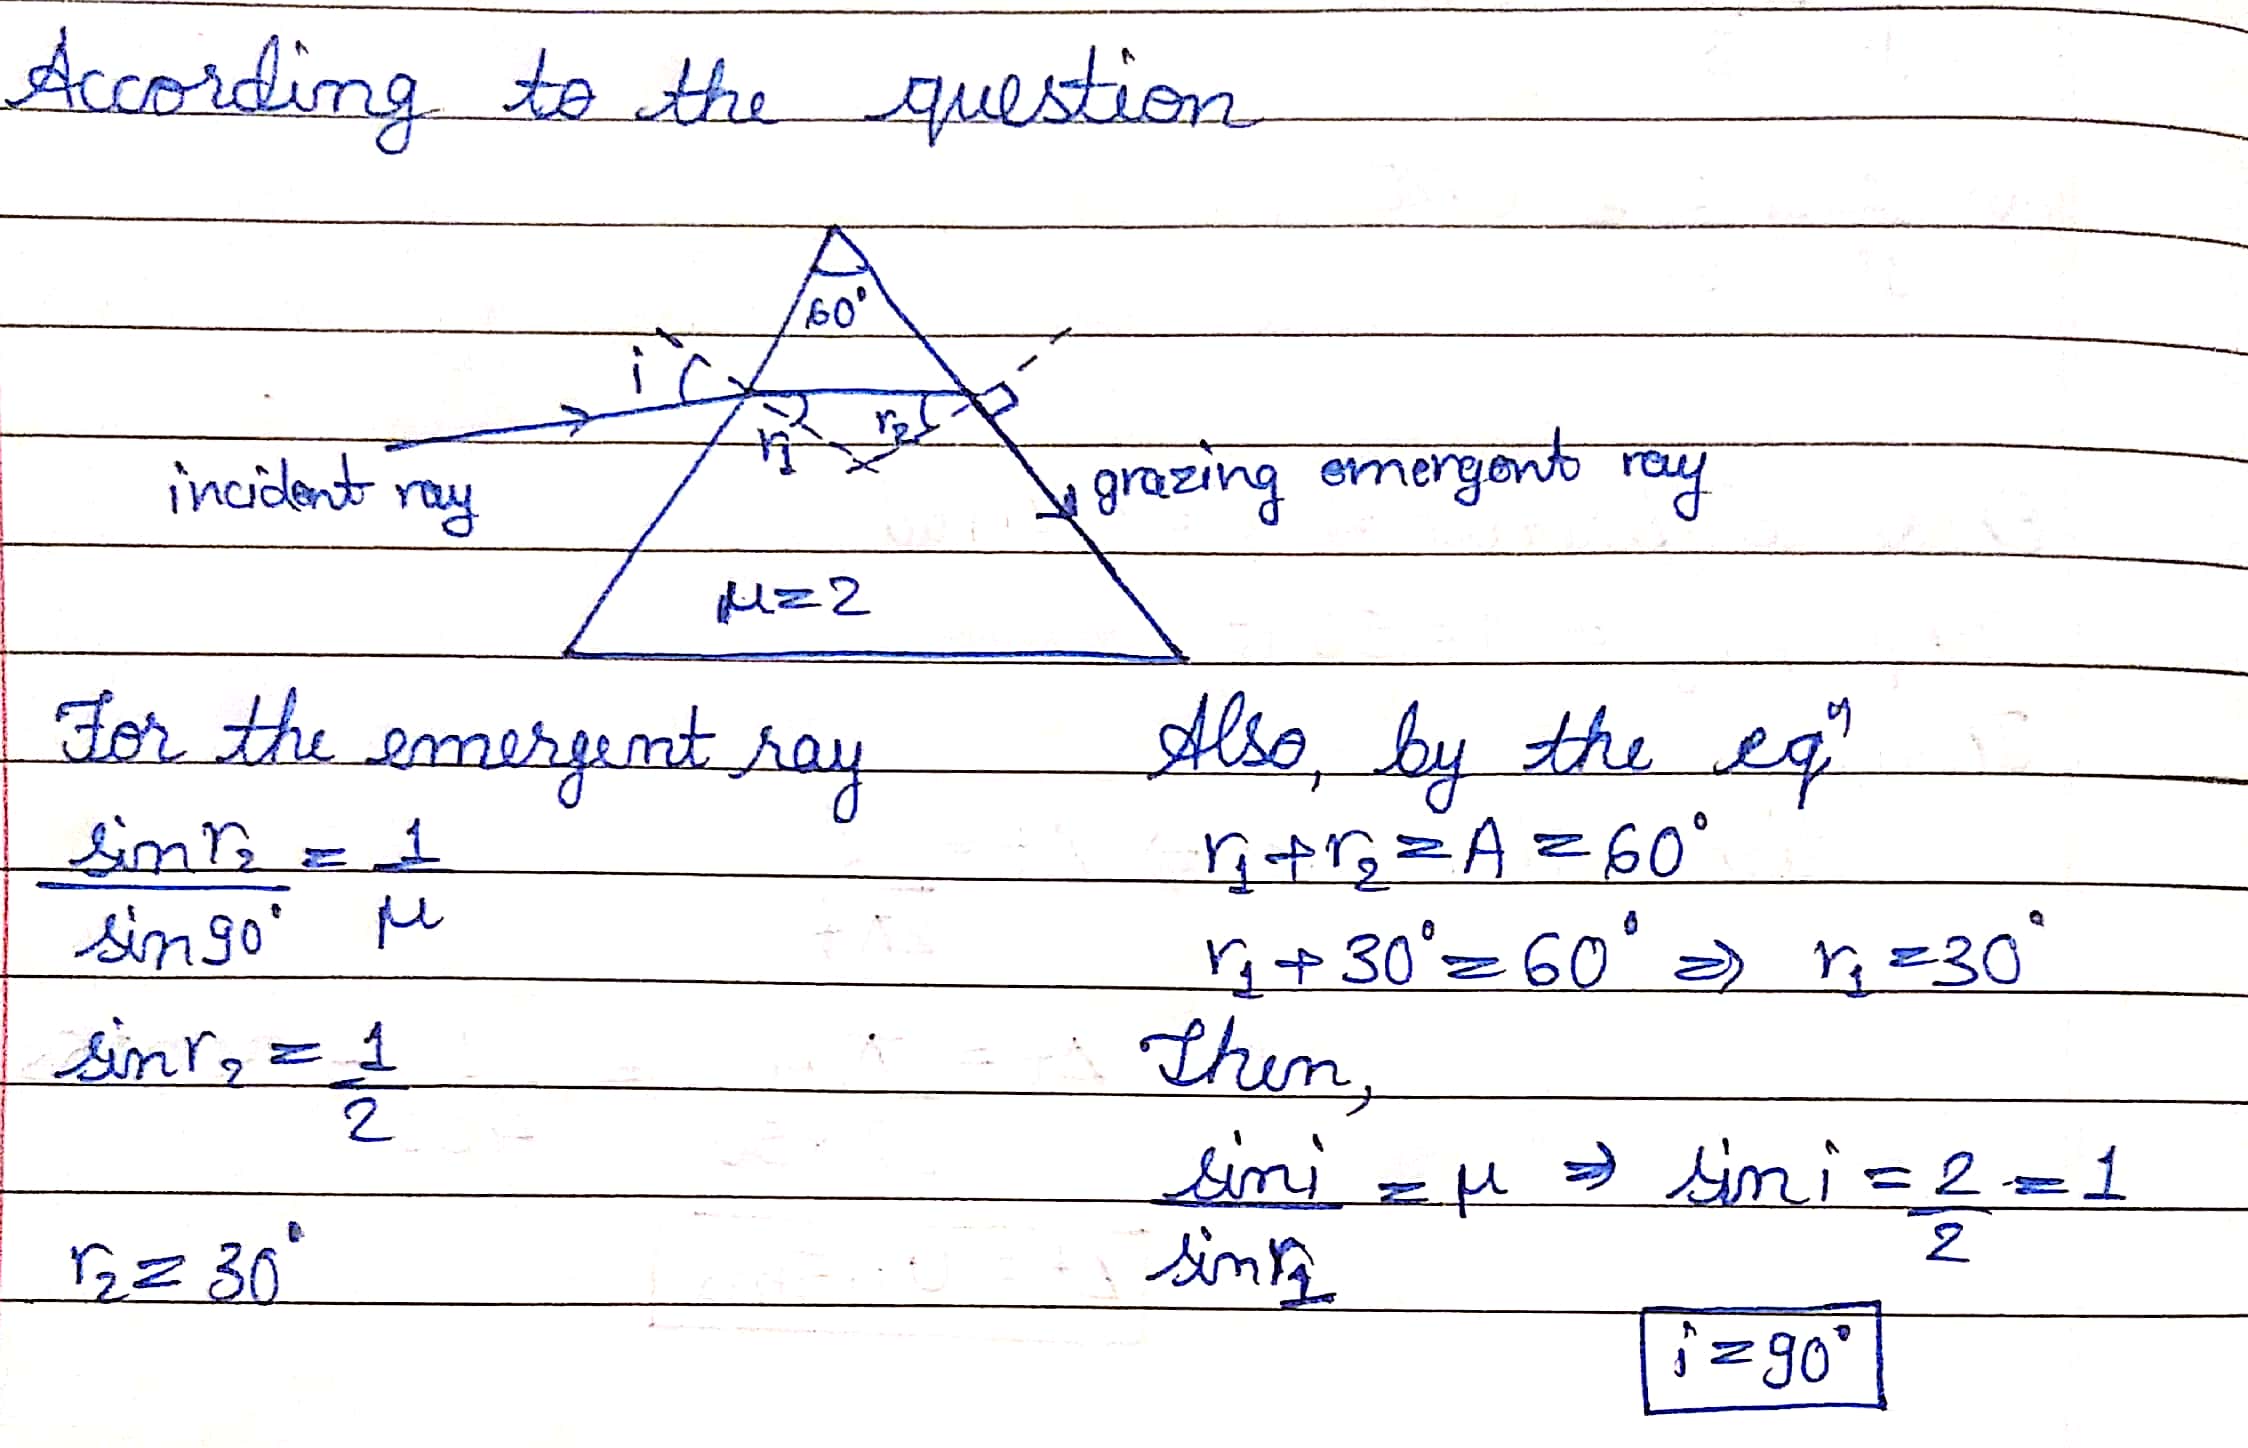 According to the question
60°
i
r₁
r₂
incident ray
grazing emergent ray
μ=2
For the emergent ray
sin r₂ / sin 90° = 1 / μ
sin r₂ = 1 / 2
r₂ = 30°
Also, by the eqⁿ
r₁ + r₂ = A = 60°
r₁ + 30° = 60° ⇒ r₁ = 30°
Then,
sin i / sin r₁ = μ ⇒ sin i = 2 / 2 = 1
i = 90°